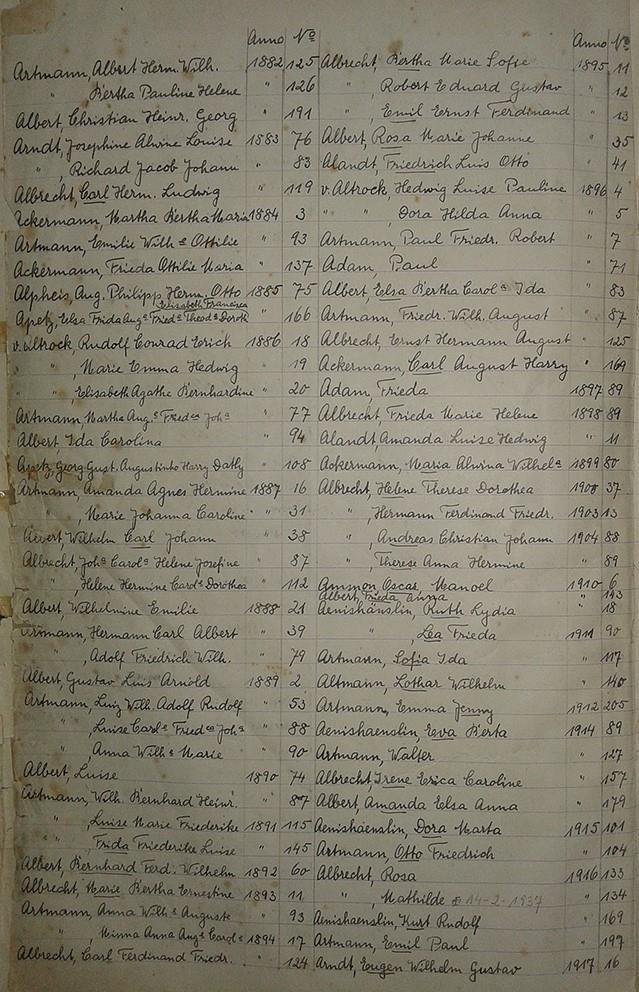 Anno Nº
Artmann, Albert Herm. Wilh. 1882 125
" Bertha Pauline Helene " 126
Albert, Christian Heinr. Georg " 191
Arndt, Josephine Alwine Louise 1883 76
" , Richard Jacob Johann " 83
Albrecht, Carl Herm. Ludwig " 119
Ackermann, Martha Bertha Maria 1884 3
Artmann, Emilie Wilhᵉ Ottilie " 93
Ackermann, Frieda Ottilie Maria " 137
Alpheis, Aug. Philipp Herm. Otto 1885 75
Elisabeth Francisca
Apetz, Elsa Frida Augᵃ Friedᵃ Theodᵃ Doroth " 166
v. Altrock, Rudolf Conrad Erich 1886 18
" " Marie Emma Hedwig " 19
" " , Elisabeth Agathe Bernhardine " 20
Artmann, Martha Augᵉ Friedᶜᵃ Johᵃ " 77
Albert Ida Carolina " 94
Apetz, Georg Gust. Augustinho Harry Dathy " 108
Artmann, Amanda Agnes Hermine 1887 16
" , Marie Johanna Caroline " 31
Albert Wilhelm Carl Johann " 38
Albrecht, Johᵃ Carolᵃ Helene Josefine " 87
" , Helene Hermine Carolᵃ Dorothea " 112
Albert, Wilhelmine Emilie 1888 21
Artmann, Hermann Carl Albert " 39
" , Adolf Friedrich Wilh. " 79
Albert, Gustav Luis Arnold 1889 2
Artmann, Luiz Wilh. Adolf Rudolf " 53
" Luise Carlᵃ Friedᶜᵃ Johᵃ " 88
" , Anna Wilhᵉ Marie " 90
Albert, Luise 1890 74
Artmann, Wilh. Bernhard Heinr. " 87
" , Luise Marie Friederike 1891 115
" , Frida Friederike Luise " 145
Albert, Bernhard Ferd. Wilhelm 1892 60
Albrecht, Marie Bertha Ernestine 1893 11
Artmann, Anna Wilhᵉ Auguste " 93
" Minna Anna Augᵉ Carolᵉ 1894 17
Albrecht, Carl Ferdinand Friedr. " 124
Anno Nº
Albrecht, Bertha Marie Sofie 1895 11
" , Robert Eduard Gustav " 12
" , Emil Ernst Ferdinand " 13
Albert Rosa Marie Johanne " 35
Alandt, Friedrich Luis Otto " 41
v. Altrock, Hedwig Luise Pauline 1896 4
" " , Dora Hilda Anna " 5
Artmann, Paul Friedr. Robert " 7
Adam, Paul " 71
Albert, Elsa Bertha Carolᵃ Ida " 83
Artmann, Friedr. Wilh. August " 87
Albrecht, Ernst Hermann August " 125
Ackermann, Carl August Harry " 169
Adam, Frieda 1897 89
Albrecht, Frieda Marie Helene 1898 89
Alandt, Amanda Luise Hedwig " 11
Ackermann, Maria Alwina Wilhelᵃ 1899 80
Albrecht, Helene Therese Dorothea 1900 37
" , Hermann Ferdinand Friedr. 1903 13
" , Andreas Christian Johann 1904 88
" , Therese Anna Hermine " 89
Ammon Oscar Manoel 1910 6
Albert, Frieda Anna " 193
Aenishänslin, Ruth Lydia " 18
" Lea Frieda 1911 90
Artmann, Sofia Ida " 117
Altmann, Lothar Wilhelm " 140
Artmann, Emma Jenny 1912 205
Aenishaenslin, Eva Berta 1914 89
Artmann, Walter " 127
Albrecht, Irene Erica Caroline " 157
Albert, Amanda Elsa Anna " 179
Aenishaenslin, Dora Marta 1915 101
Artmann, Otto Friedrich " 104
Albrecht, Rosa 1916 133
" , Mathilde 14-2-1937 " 134
Aenishaenslin, Kurt Rudolf " 169
Artmann, Emil Paul " 197
Arndt, Eugen Wilhelm Gustav 1917 16